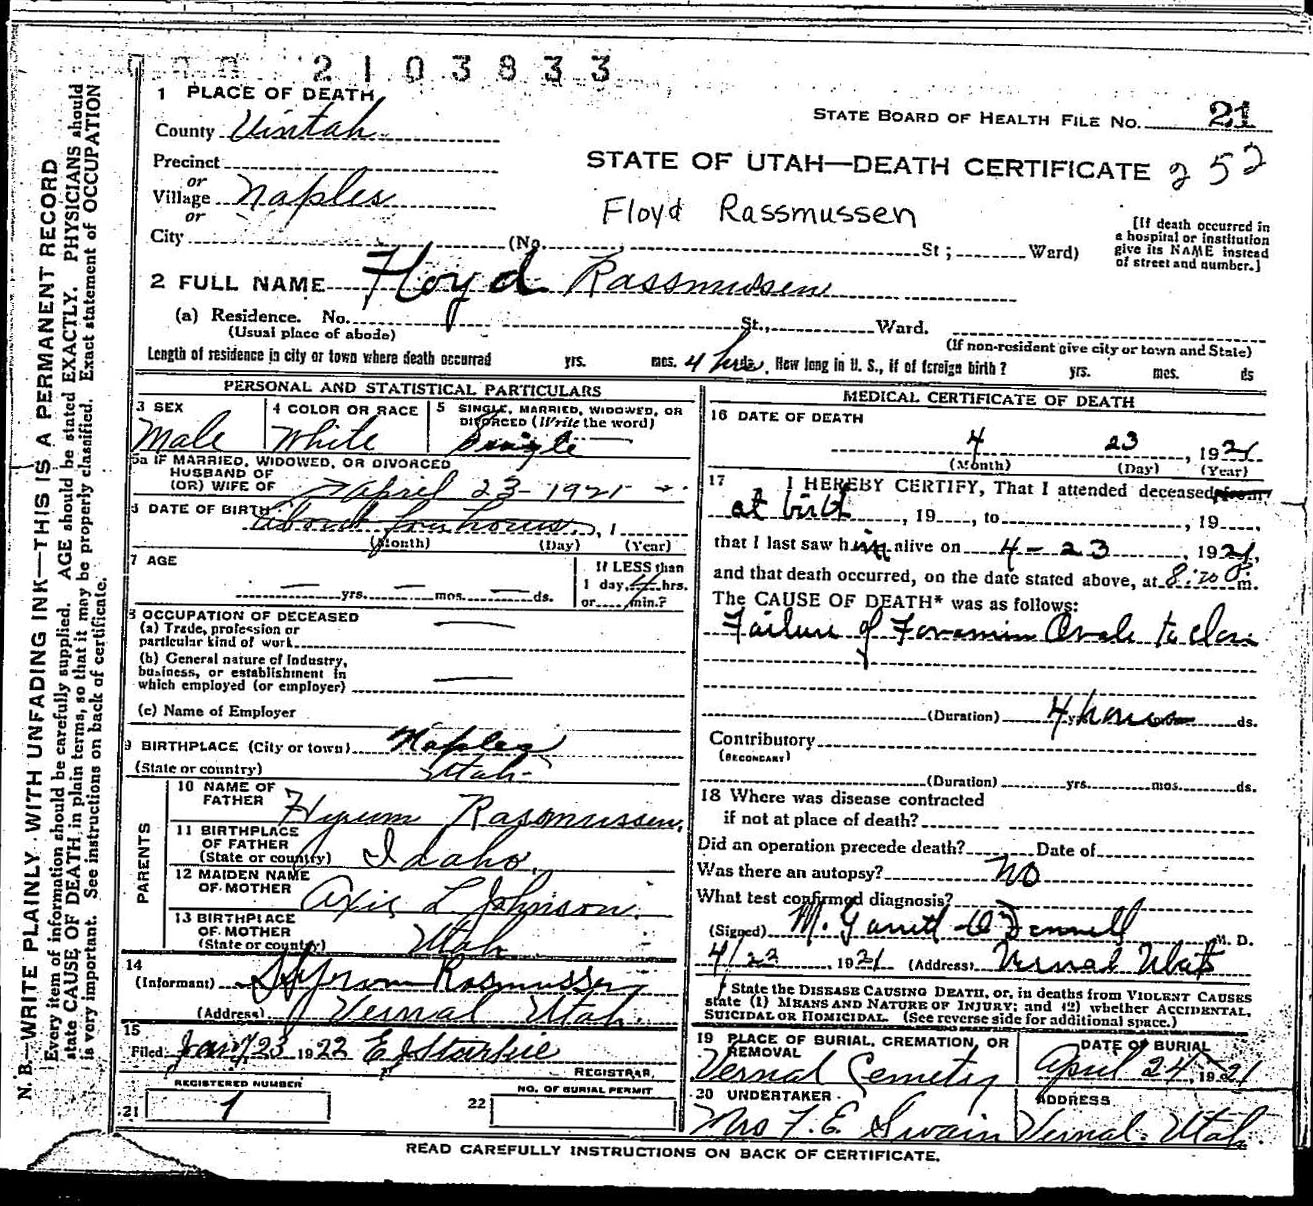 2103833
1 PLACE OF DEATH
STATE BOARD OF HEALTH FILE NO. 21
County Uintah
STATE OF UTAH—DEATH CERTIFICATE 252
Precinct
or
Village Naples
or
Floyd Rassmussen
City (No. St ; Ward)
[If death occurred in
a hospital or institution
give its NAME instead
of street and number.]
2 FULL NAME Floyd Rassmussen
(a) Residence. No. St., Ward.
(Usual place of abode)
(If non-resident give city or town and State)
Length of residence in city or town where death occurred yrs. mos. 4 hrs ds. How long in U. S., if of foreign birth? yrs. mos. ds
PERSONAL AND STATISTICAL PARTICULARS
3 SEX
Male
4 COLOR OR RACE
White
5 SINGLE, MARRIED, WIDOWED, OR
DIVORCED (Write the word)
Single
5a IF MARRIED, WIDOWED, OR DIVORCED
HUSBAND OF
(OR) WIFE OF
April 23-1921
6 DATE OF BIRTH
about four hours, 1
(Month) (Day) (Year)
7 AGE
— yrs. — mos. — ds.
If LESS than
1 day, 4 hrs.
or min.?
8 OCCUPATION OF DECEASED
(a) Trade, profession or
particular kind of work
(b) General nature of industry,
business, or establishment in
which employed (or employer)
(c) Name of Employer
9 BIRTHPLACE (City or town) Naples
(State or country) Utah
PARENTS
10 NAME OF
FATHER Hyrum Rasmussen,
11 BIRTHPLACE
OF FATHER
(State or country) Idaho,
12 MAIDEN NAME
OF MOTHER L Johnson.
13 BIRTHPLACE
OF MOTHER
(State or country) Utah
14
(Informant) Hyrum Rasmussen
(Address) Vernal Utah.
15
Filed Jany 23 1922 E J Starkie
REGISTRAR.
REGISTERED NUMBER
21 1
NO. OF BURIAL PERMIT
22
MEDICAL CERTIFICATE OF DEATH
16 DATE OF DEATH
4 23, 1921
(Month) (Day) (Year)
17 I HEREBY CERTIFY, That I attended deceased from
at birth, 19, to, 19,
that I last saw him alive on 4-23, 1921,
and that death occurred, on the date stated above, at 8:20 P m.
The CAUSE OF DEATH* was as follows:
Failure of Foramin Ovale to close
(Duration) 4 hours ds.
Contributory
(SECONDARY)
(Duration) yrs. mos. ds.
18 Where was disease contracted
if not at place of death?
Did an operation precede death? Date of
Was there an autopsy? No
What test confirmed diagnosis?
(Signed) M. , M. D.
4/23, 1921 (Address) Vernal Utah
* State the DISEASE CAUSING DEATH, or, in deaths from VIOLENT CAUSES
state (1) MEANS AND NATURE OF INJURY; and (2) whether ACCIDENTAL,
SUICIDAL OR HOMICIDAL. (See reverse side for additional space.)
19 PLACE OF BURIAL, CREMATION, OR
REMOVAL
Vernal Cemetry
DATE OF BURIAL
April 24, 1921
20 UNDERTAKER
Mrs F. E. Swain
ADDRESS
Vernal, Utah
READ CAREFULLY INSTRUCTIONS ON BACK OF CERTIFICATE.
N. B.—WRITE PLAINLY, WITH UNFADING INK—THIS IS A PERMANENT RECORD
Every item of information should be carefully supplied. AGE should be stated EXACTLY. PHYSICIANS should
state CAUSE OF DEATH in plain terms, so that it may be properly classified. Exact statement of OCCUPATION
is very important. See instructions on back of certificate.